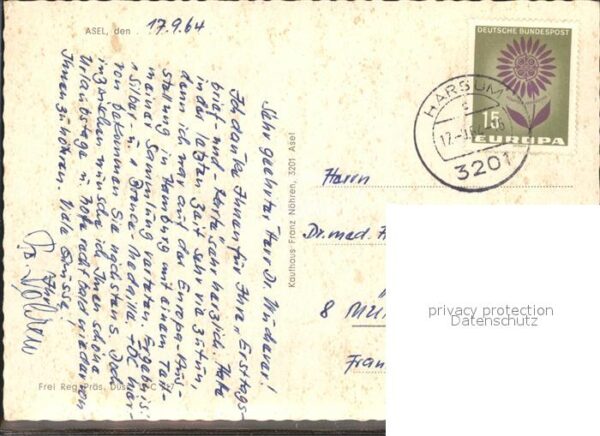 ASEL, den 17.9.64
Sehr geehrter Herr Dr.
Ich danke Ihnen für Ihre „Ersttags-
brief- und -karte" sehr herzlich. Habe
in der letzten Zeit sehr viel zu tun,
denn ich war auf der Europa-Aus-
stellung in Hamburg mit einem Teil
meiner Sammlung vertreten. Ergebnis:
1 Silber- u. 1 Bronce-Medaille. FDC hier-
von bekommen Sie nächstens. Doch
inzwischen wünsche ich Ihnen schöne
Urlaubstage u. hoffe recht bald wieder von
Ihnen zu hören. Viele Grüsse!
Ihr
Kaufhaus Franz Nöhren, 3201 Asel
Frei Reg. Präs. Düss.
DEUTSCHE BUNDESPOST
15
EUROPA
HARSUM
17.
3201
Herrn
Dr. med.
8
privacy protection
Datenschutz